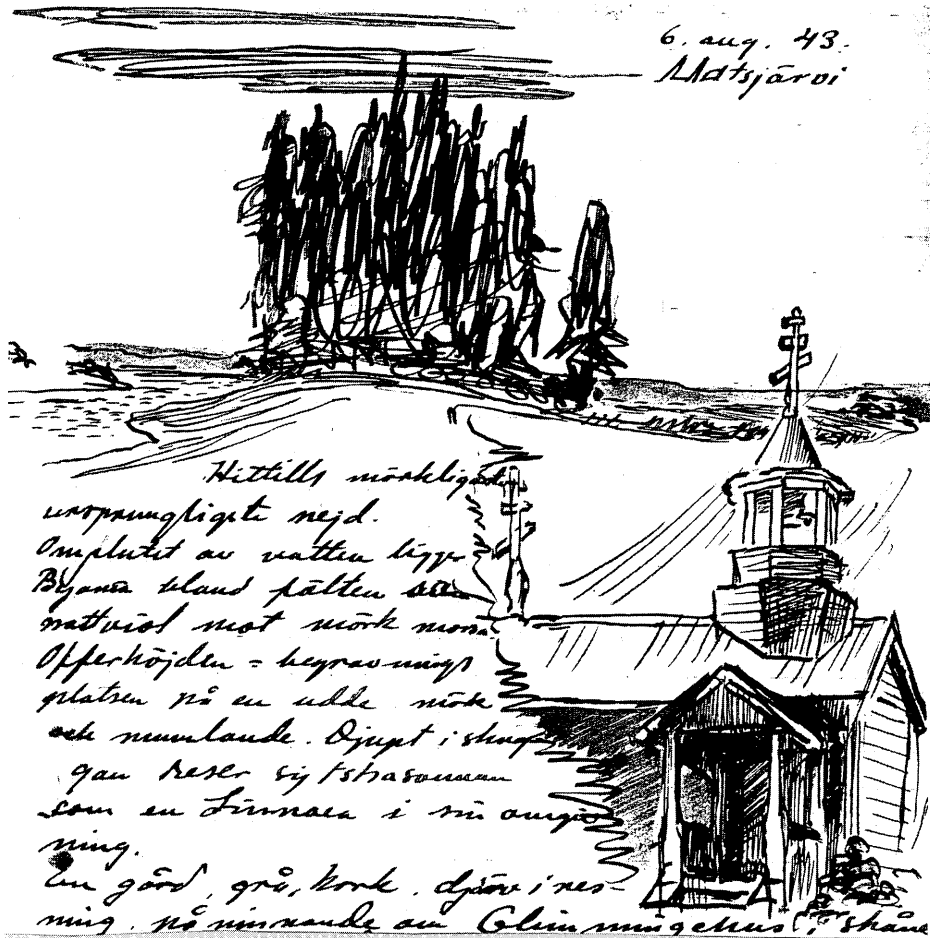 6. aug. 43.
Hittills märkligaste
ursprungligste nejd.
Omslutet av vatten ligger
Byarna bland fälten
nattviol mot mörk
Offerhöjden = begravnings
platsen på en udde mörk
och mumlande. Djupt i
reser sig tshasounan
som en Linnaea i sin omgiv
ning.
En gård, grå, stork, djärv i res-
ning, påminnande om Glimmingehus i Skåne